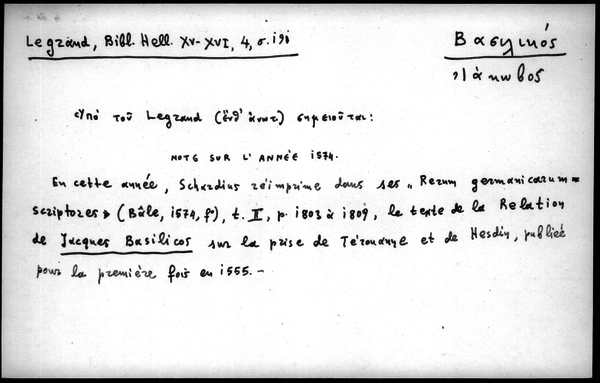 Legrand, Bibl. Hell. XV-XVI, 4, σ. 191
Βασιλικός
Ἰάκωβος
Ὑπὸ τοῦ Legrand (ἔνθ' ἀνωτ.) σημειοῦται:
NOTE SUR L'ANNÉE 1574.
En cette année, Schardius réimprime dans ses „Rerum germanicarum=
scriptores» (Bâle, 1574, fº), t. II, p. 1803 à 1809, le texte de la Relation
de Jacques Basilicos sur la prise de Térouanne et de Hesdin, publiée
pour la première fois en 1555.-